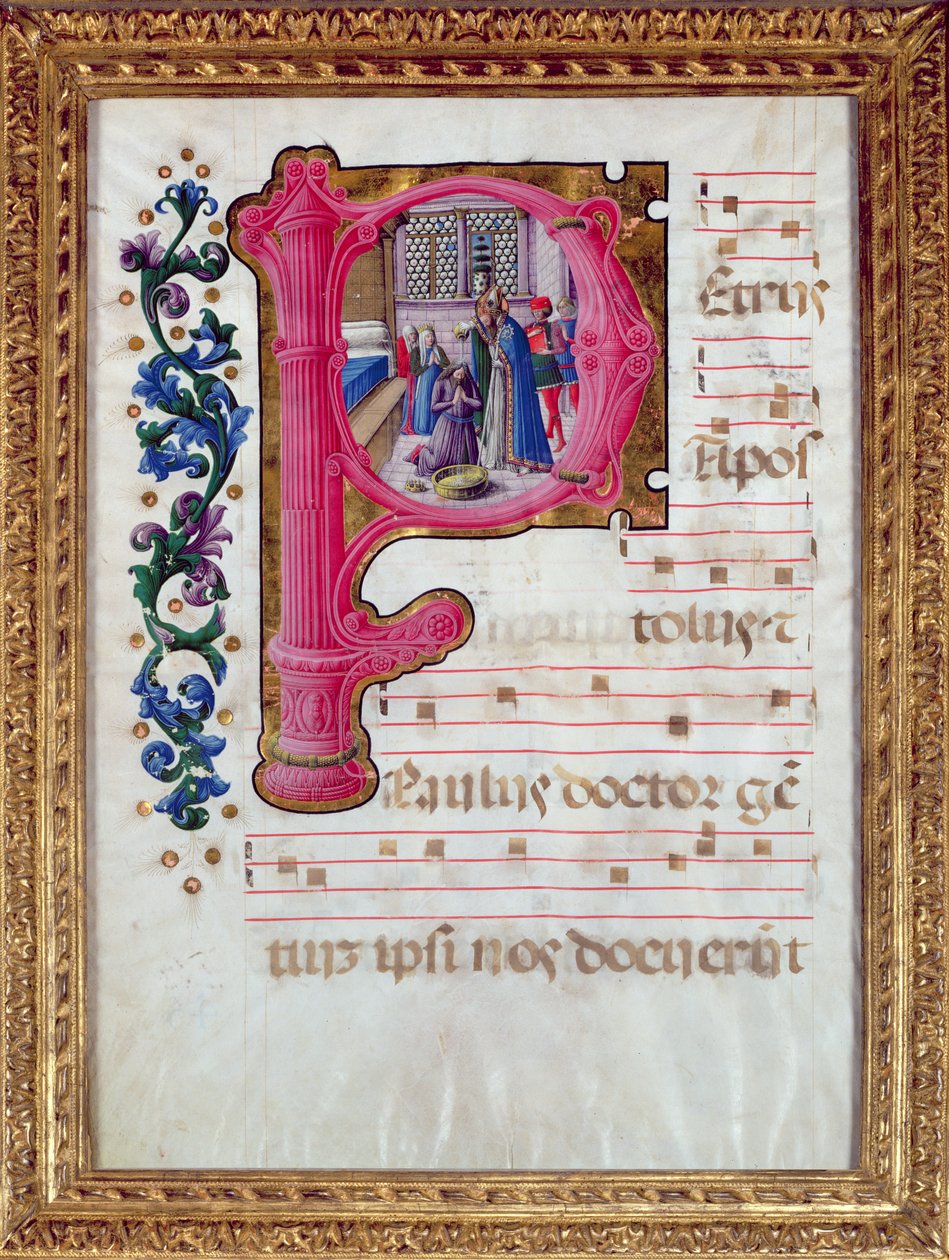 PEtrus
Apos
tolus ⁊
Paulus doctor gē
tiuȝ ipsi nos docuerūt